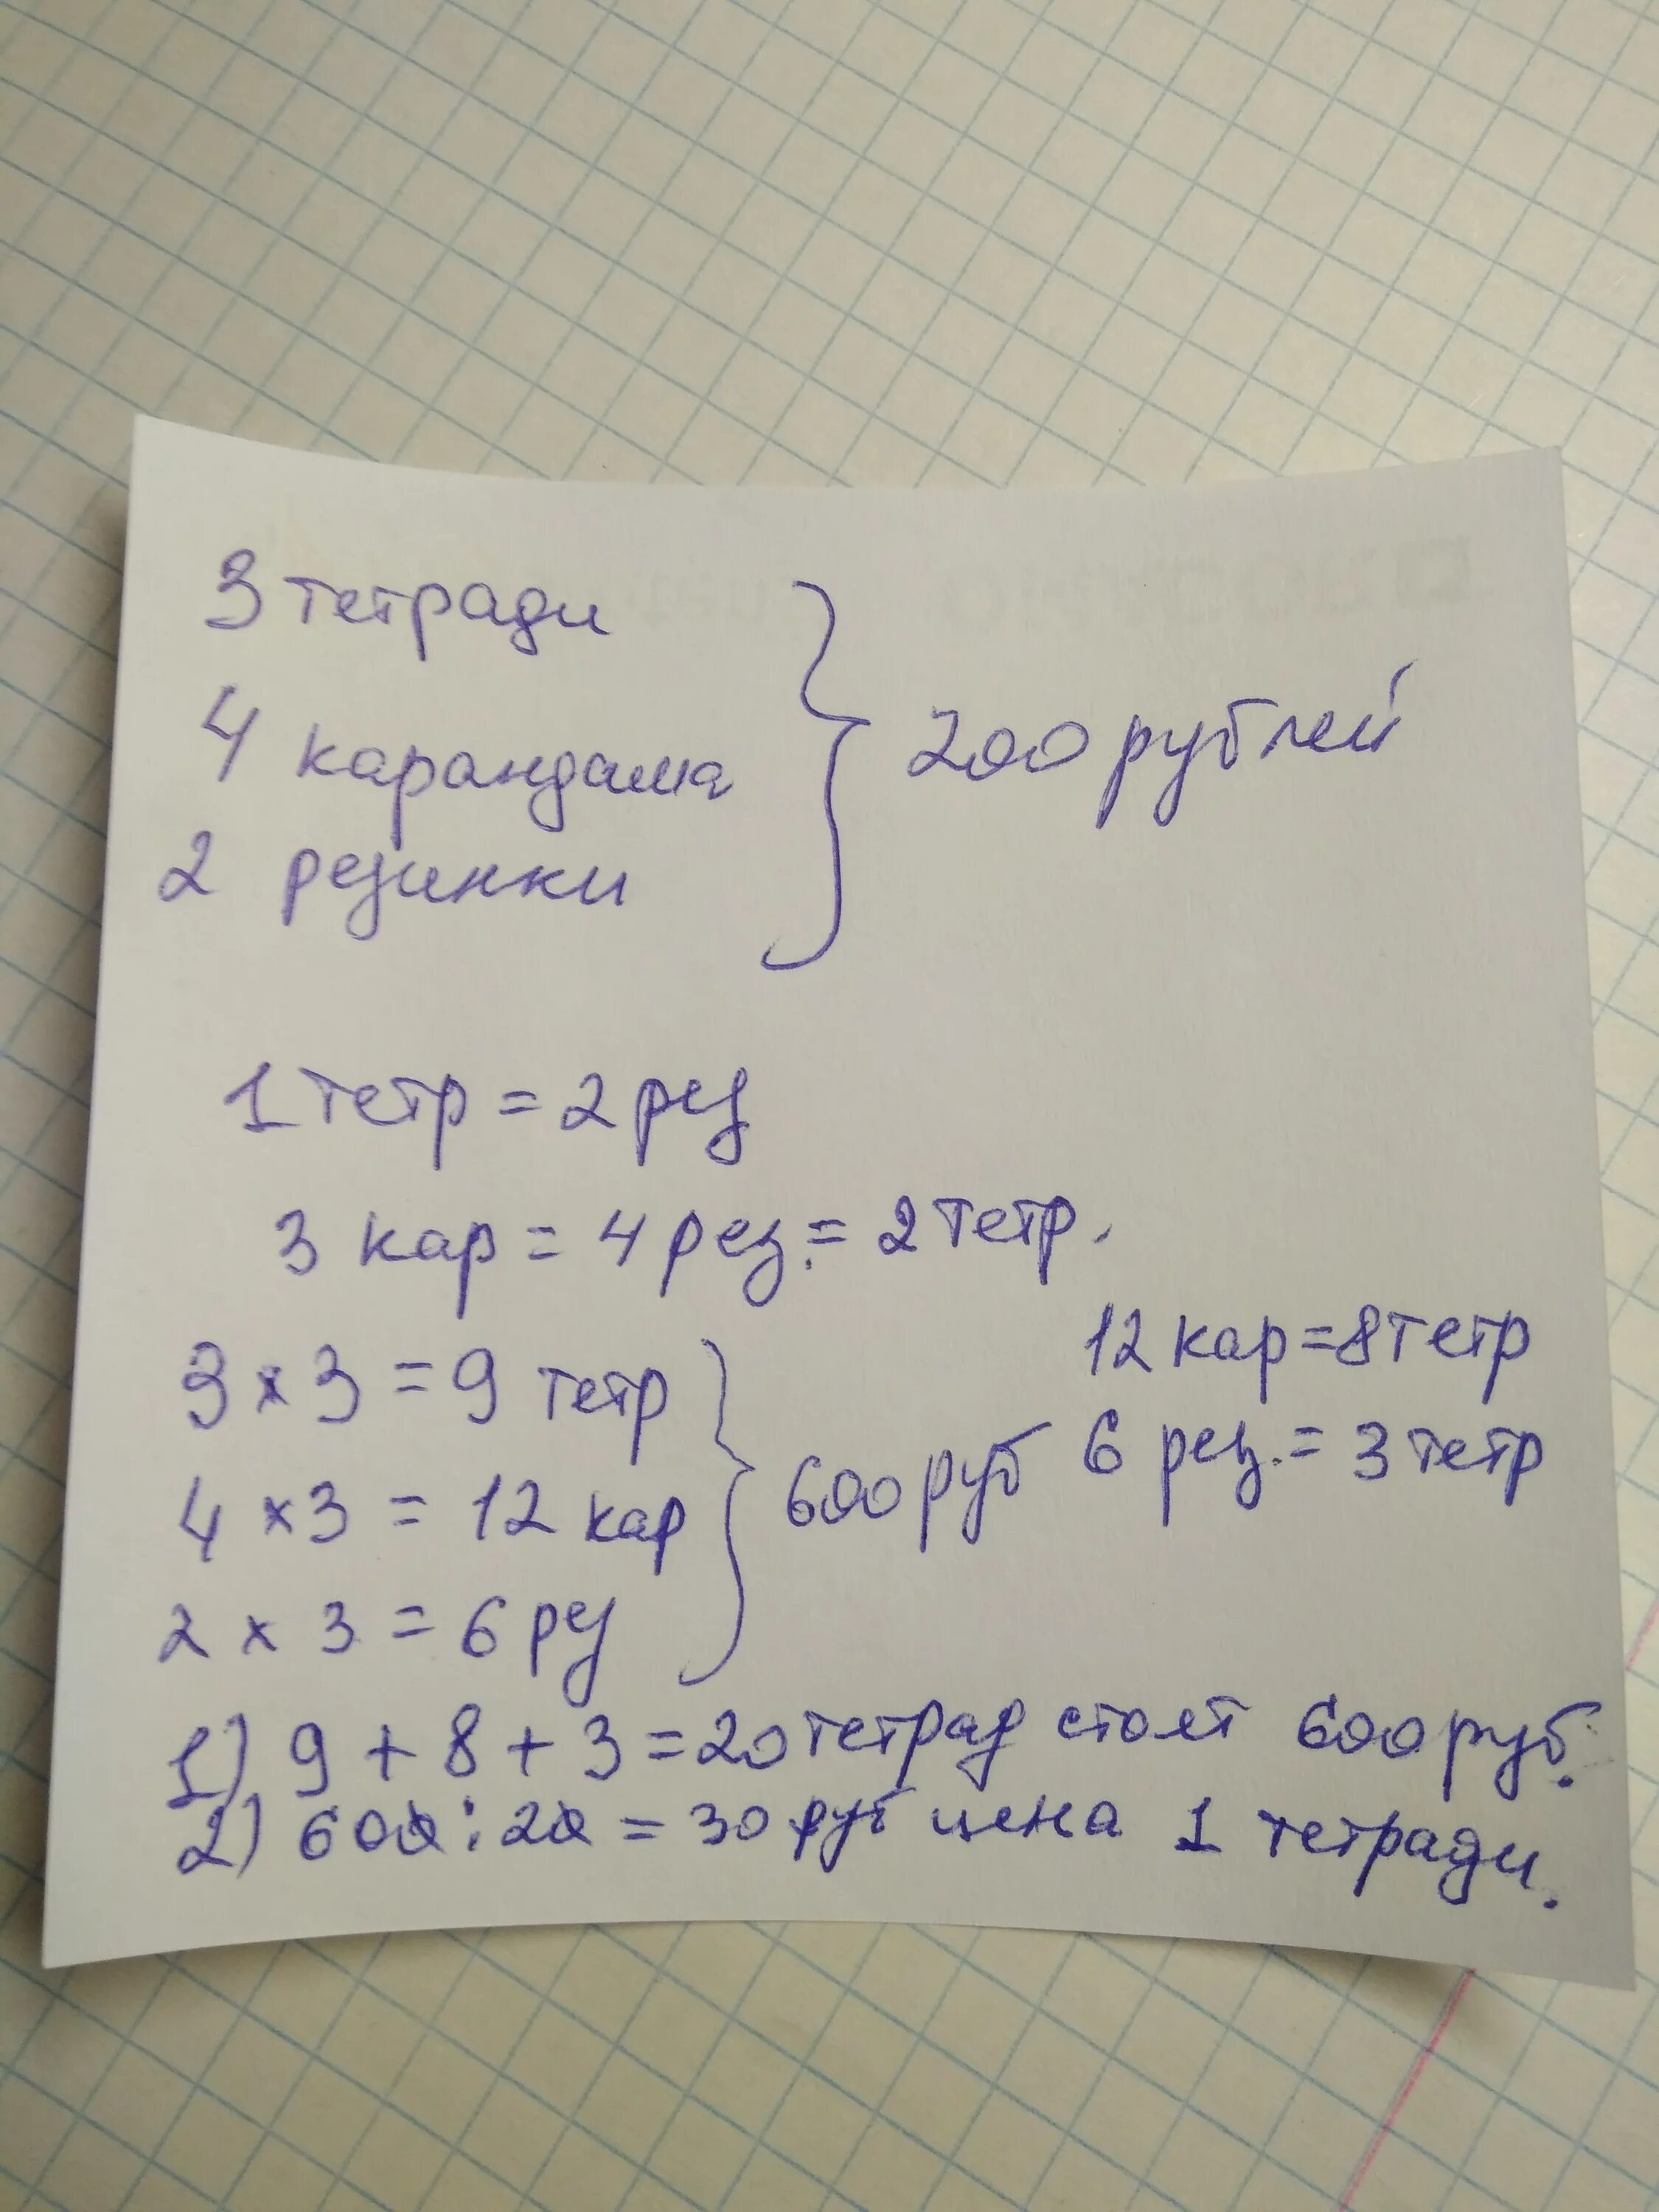 3 тетради
4 карандаша
2 резинки
200 рублей
1 тетр = 2 рез
3 кар = 4 рез. = 2 тетр.
3 × 3 = 9 тетр
4 × 3 = 12 кар
2 × 3 = 6 рез
600 руб
12 кар = 8 тетр
6 рез. = 3 тетр
1) 9 + 8 + 3 = 20 тетрад стоят 600 руб.
2) 600 : 20 = 30 руб цена 1 тетради.